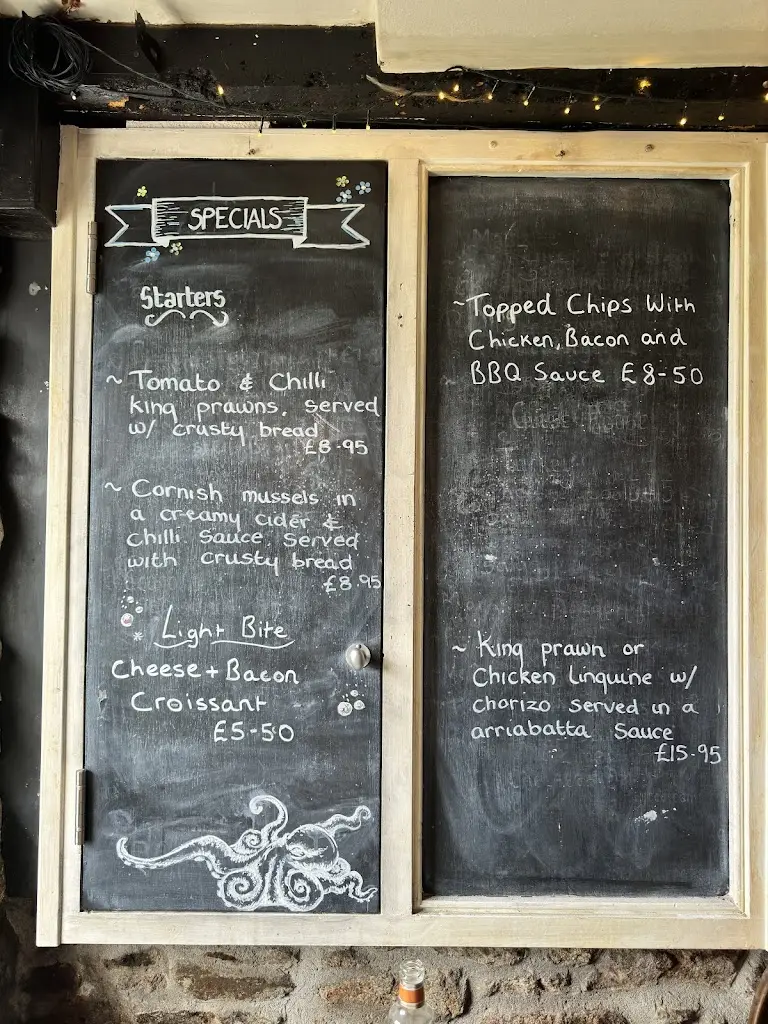 SPECIALS
Starters
~ Tomato & Chilli
king prawns. served
w/ crusty bread
£8.95
~ Cornish mussels in
a creamy cider &
chilli sauce served
with crusty bread
£8.95
Light Bite
Cheese + Bacon
Croissant
£5-50
~ Topped Chips With
Chicken, Bacon and
BBQ Sauce £8-50
~ King prawn or
Chicken linquine w/
chorizo served in a
arriabatta Sauce
£15.95